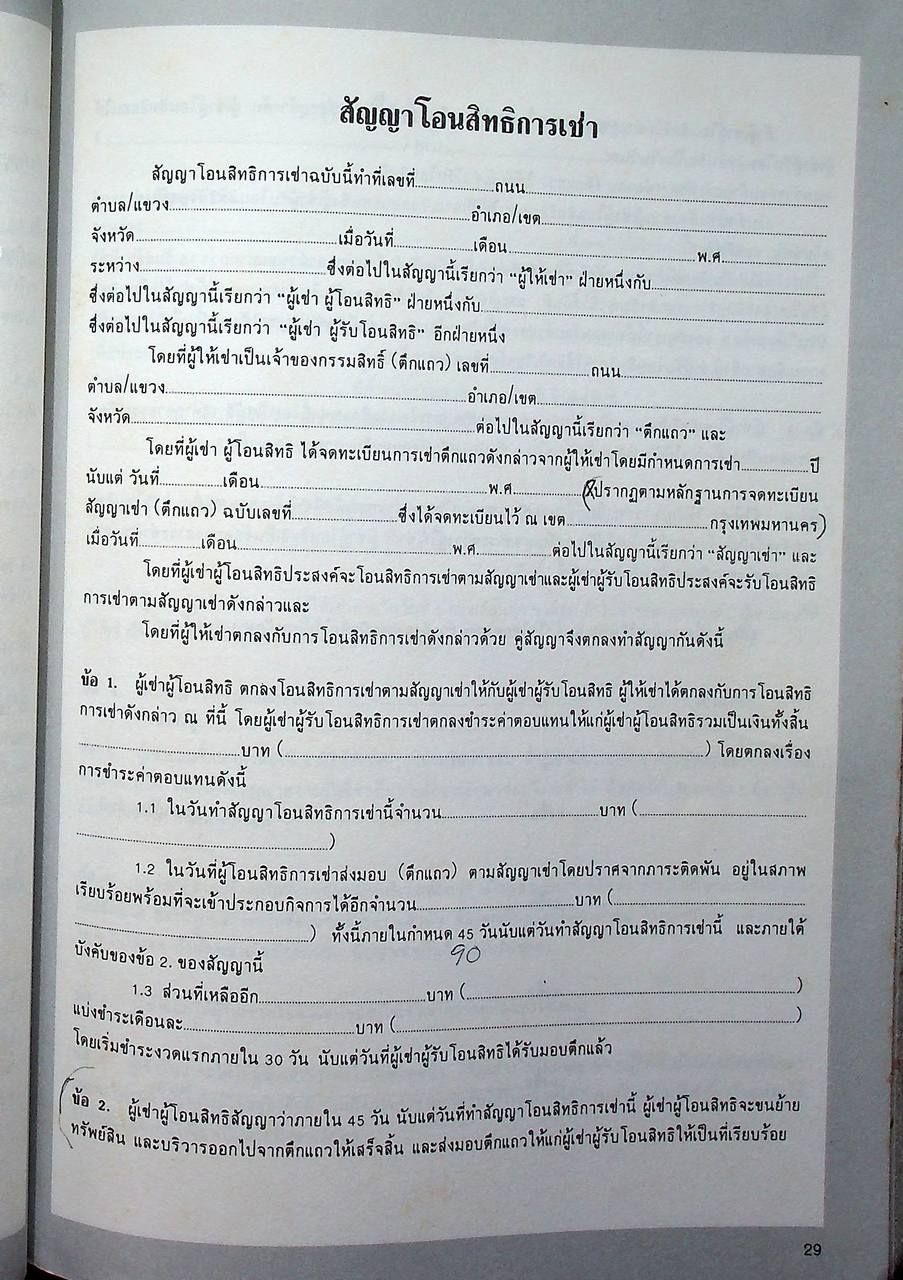 สัญญาโอนสิทธิการเช่า
สัญญาโอนสิทธิการเช่าฉบับนี้ทำที่เลขที่....................ถนน....................
ตำบล/แขวง....................อำเภอ/เขต....................
จังหวัด....................เมื่อวันที่....................เดือน....................พ.ศ.....................
ระหว่าง....................ซึ่งต่อไปในสัญญานี้เรียกว่า “ผู้ให้เช่า” ฝ่ายหนึ่งกับ....................
ซึ่งต่อไปในสัญญานี้เรียกว่า “ผู้เช่า ผู้โอนสิทธิ” ฝ่ายหนึ่งกับ....................
ซึ่งต่อไปในสัญญานี้เรียกว่า “ผู้เช่า ผู้รับโอนสิทธิ” อีกฝ่ายหนึ่ง
โดยที่ผู้ให้เช่าเป็นเจ้าของกรรมสิทธิ์ (ตึกแถว) เลขที่....................ถนน....................
ตำบล/แขวง....................อำเภอ/เขต....................
จังหวัด....................ต่อไปในสัญญานี้เรียกว่า “ตึกแถว” และ
โดยที่ผู้เช่า ผู้โอนสิทธิ ได้จดทะเบียนการเช่าตึกแถวดังกล่าวจากผู้ให้เช่าโดยมีกำหนดการเช่า....................ปี
นับแต่ วันที่....................เดือน....................พ.ศ.....................(ปรากฏตามหลักฐานการจดทะเบียน
สัญญาเช่า (ตึกแถว) ฉบับเลขที่....................ซึ่งได้จดทะเบียนไว้ ณ เขต....................กรุงเทพมหานคร)
เมื่อวันที่....................เดือน....................พ.ศ.....................ต่อไปในสัญญานี้เรียกว่า “สัญญาเช่า” และ
โดยที่ผู้เช่าผู้โอนสิทธิประสงค์จะโอนสิทธิการเช่าตามสัญญาเช่าและผู้เช่าผู้รับโอนสิทธิประสงค์จะรับโอนสิทธิ
การเช่าตามสัญญาเช่าดังกล่าวและ
โดยที่ผู้ให้เช่าตกลงกับการโอนสิทธิการเช่าดังกล่าวด้วย คู่สัญญาจึงตกลงทำสัญญากันดังนี้
ข้อ 1. ผู้เช่าผู้โอนสิทธิ ตกลงโอนสิทธิการเช่าตามสัญญาเช่าให้กับผู้เช่าผู้รับโอนสิทธิ ผู้ให้เช่าได้ตกลงกับการโอนสิทธิ
การเช่าดังกล่าว ณ ที่นี้ โดยผู้เช่าผู้รับโอนสิทธิการเช่าตกลงชำระค่าตอบแทนให้แก่ผู้เช่าผู้โอนสิทธิรวมเป็นเงินทั้งสิ้น
....................บาท (....................) โดยตกลงเรื่อง
การชำระค่าตอบแทนดังนี้
1.1 ในวันทำสัญญาโอนสิทธิการเช่านี้จำนวน....................บาท (....................
....................)
1.2 ในวันที่ผู้โอนสิทธิการเช่าส่งมอบ (ตึกแถว) ตามสัญญาเช่าโดยปราศจากภาระติดพัน อยู่ในสภาพ
เรียบร้อยพร้อมที่จะเข้าประกอบกิจการได้อีกจำนวน....................บาท (....................
....................) ทั้งนี้ภายในกำหนด 45 วันนับแต่วันทำสัญญาโอนสิทธิการเช่านี้ และภายใต้
90
บังคับของข้อ 2. ของสัญญานี้
1.3 ส่วนที่เหลืออีก....................บาท (....................)
แบ่งชำระเดือนละ....................บาท (....................)
โดยเริ่มชำระงวดแรกภายใน 30 วัน นับแต่วันที่ผู้เช่าผู้รับโอนสิทธิได้รับมอบตึกแล้ว
ข้อ 2. ผู้เช่าผู้โอนสิทธิสัญญาว่าภายใน 45 วัน นับแต่วันที่ทำสัญญาโอนสิทธิการเช่านี้ ผู้เช่าผู้โอนสิทธิจะขนย้าย
ทรัพย์สิน และบริวารออกไปจากตึกแถวให้เสร็จสิ้น และส่งมอบตึกแถวให้แก่ผู้เช่าผู้รับโอนสิทธิให้เป็นที่เรียบร้อย
29